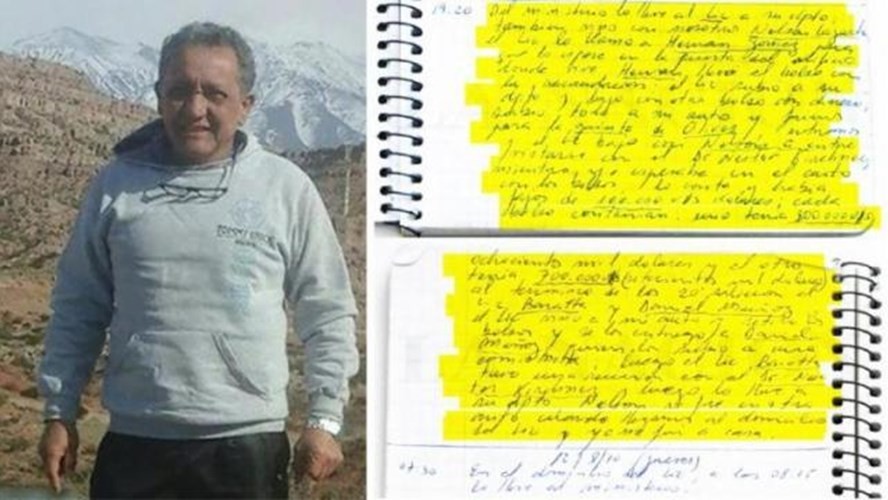 19.20 Del ministerio lo lleve al Lic a su dpto,
tambien vino con nosotros Nelson Lazarte
el Lic lo llamo a Hernan Gomez para
q lo espere en la puerta del edificio
donde vive Hernan, llevo el bolso con
la recaudacion el Lic subio a su
dpto y bajo con otro bolso con dinero,
todo a mi auto y fuimos
para la quinta de Olivos, entramos
y el Lic bajo con Nelson a entre
vistarse con el Dr Nestor Kirchner,
mientras yo esperaba en el auto
con los bolsos lo conte y habia
fajos de 100.000 dolares, cada
bolso contenian. uno tenia 800.000 u$s
ochociento mil dolares y el otro
tenia 700.000 (setecientos mil dolares)
al termino de los 20 minutos el
Lic Baratta y Daniel Muñoz
el Lic vino a mi auto y retiro los
bolsos y se los entrego a Daniel
Muñoz y quien lo subio a una
camioneta. Luego el Lic Baratta
tuvo una reunion con el Dr Nes
tor Kirchner y luego lo lleve a
su dpto Nelson se fue en otro
auto cuando llegamos al domicilio
del Lic y yo me fui a casa.
12/8/10 (jueves)
07:30 En el domicilio del Lic, a las 08.15
lo lleve al ministerio.